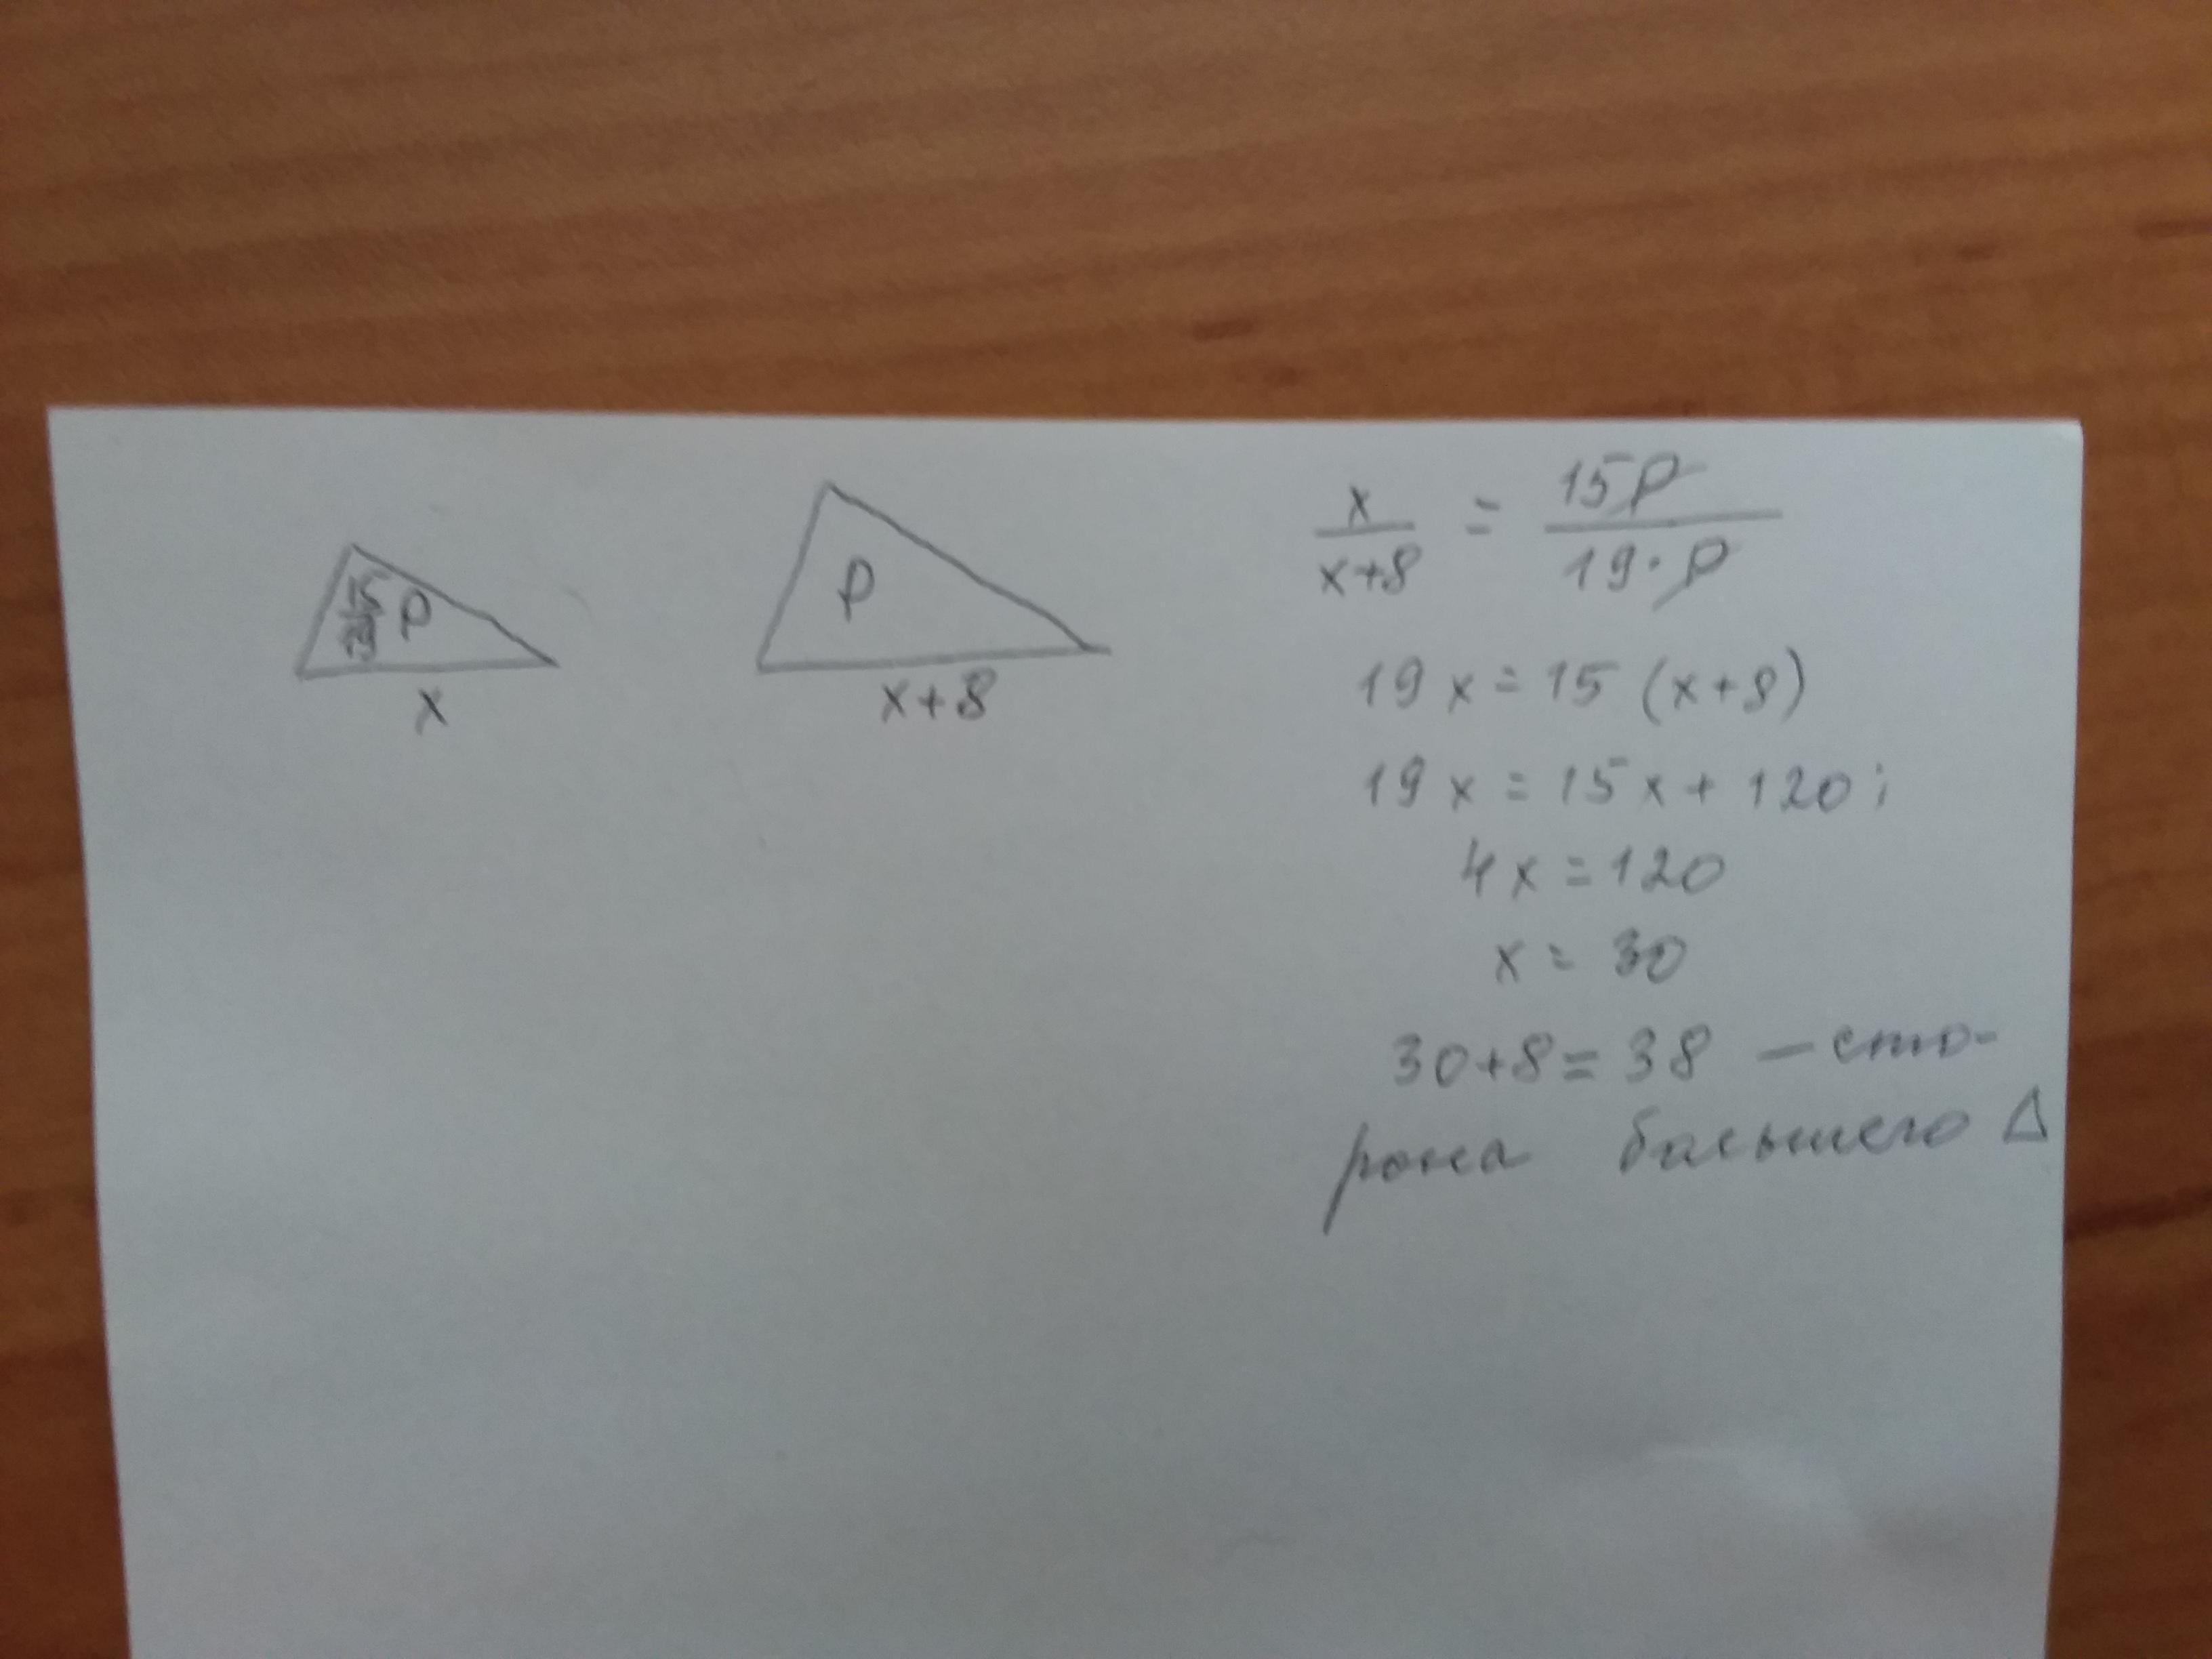 15/19 P
x
P
x+8
x/(x+8) = 15P/(19·P)
19x=15(x+8)
19x=15x+120;
4x=120
x=30
30+8=38 – сто-
рона большего Δ